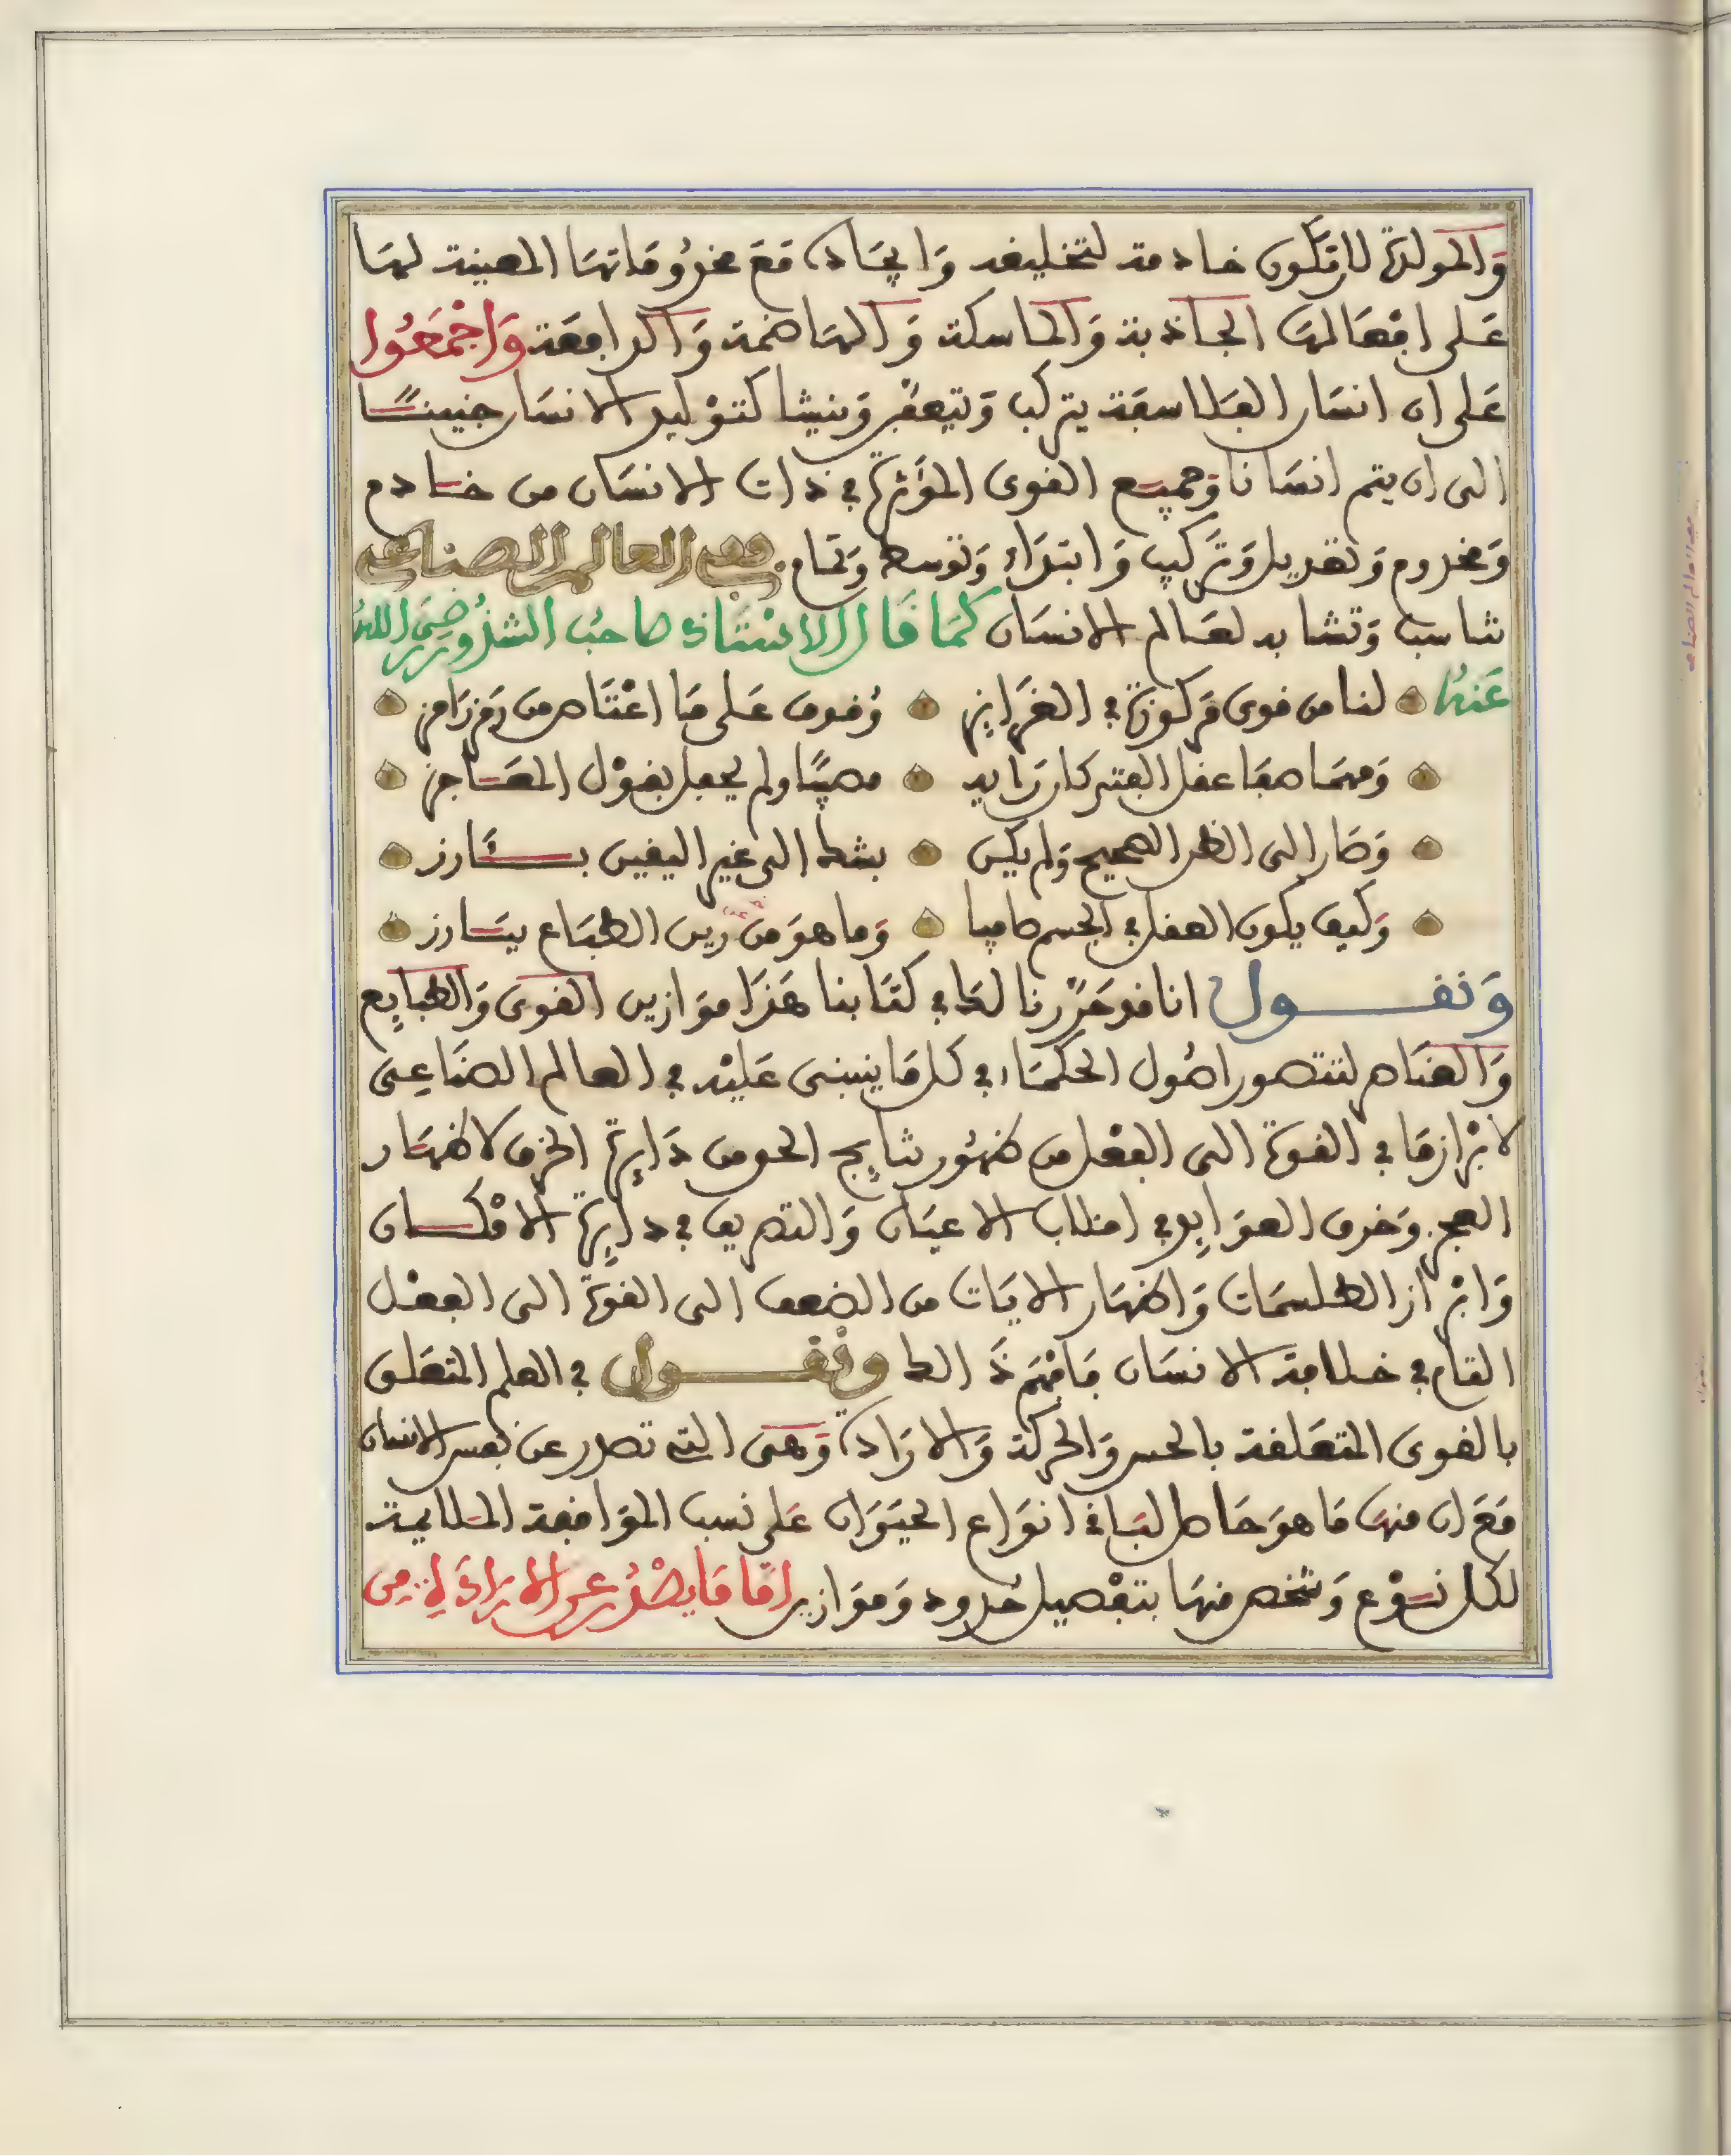 والمولدة لان تكون خادمة لتخليقه وايجاده مع مخدوماتها المعينة لها
على افعالها الجاذبة والماسكة والهاضمة والدافعة واجمعوا
على ان انسان الفلاسفة يتركب ويتعفن وينشا كتوليد الانسان جنينًا
الى ان يتم انسانا وجميع القوى المؤثرة في ذات الانسان من خادم
ومخدوم وتعديل وتركيب وابتداء وتوسط وتمام في العالم الصناعي
تناسب وتشابه لعالم الانسان كما قال الاستاذ صاحب الشذور رضي الله
عنه لنا من قوى مركوزة في الغرايز وقوف على ما اعتاص من رمز رامز
ومهما صفا عقل الفتى كان رايه مصيبًا ولم يحفل بقول المعاجز
وصار الى الظن الصحيح ولم يكن بشط الى غير اليقين بـارز
وكيف يكون العقل في الجسم صافيا وما هو من رين الطباع ببارز
ونقـول انا قد حررنا لك في كتابنا هذا موازين القوى والطبايع
والعناصر لتتصور اصول الحكماء في كل ما ينبني عليه في العالم الصناعي
لابرازها في القوة الى الفعل من ظهور نتايج الحق من دايرة الخرق لاظهار
العجز وخرق العوايد في انقلاب الاعيان والتصريف في دايرة الامكان
وابراز الطلسمات واظهار الايات من الضعف الى القوة الى الفعل
التام في خلافة الانسان فافهم ذالك ونقـول في العلم المتعلق
بالقوى المتعلقة بالحس والحركة والارادة وهي التي تصدر عن نفس الانسان
مع ان منها ما هو حاصل في انواع الحيوان على نسب الموافقة الملايمة
لكل نوع وشخص منها بتفصيل حدود وموازين اما ما يصدر عن الارادة